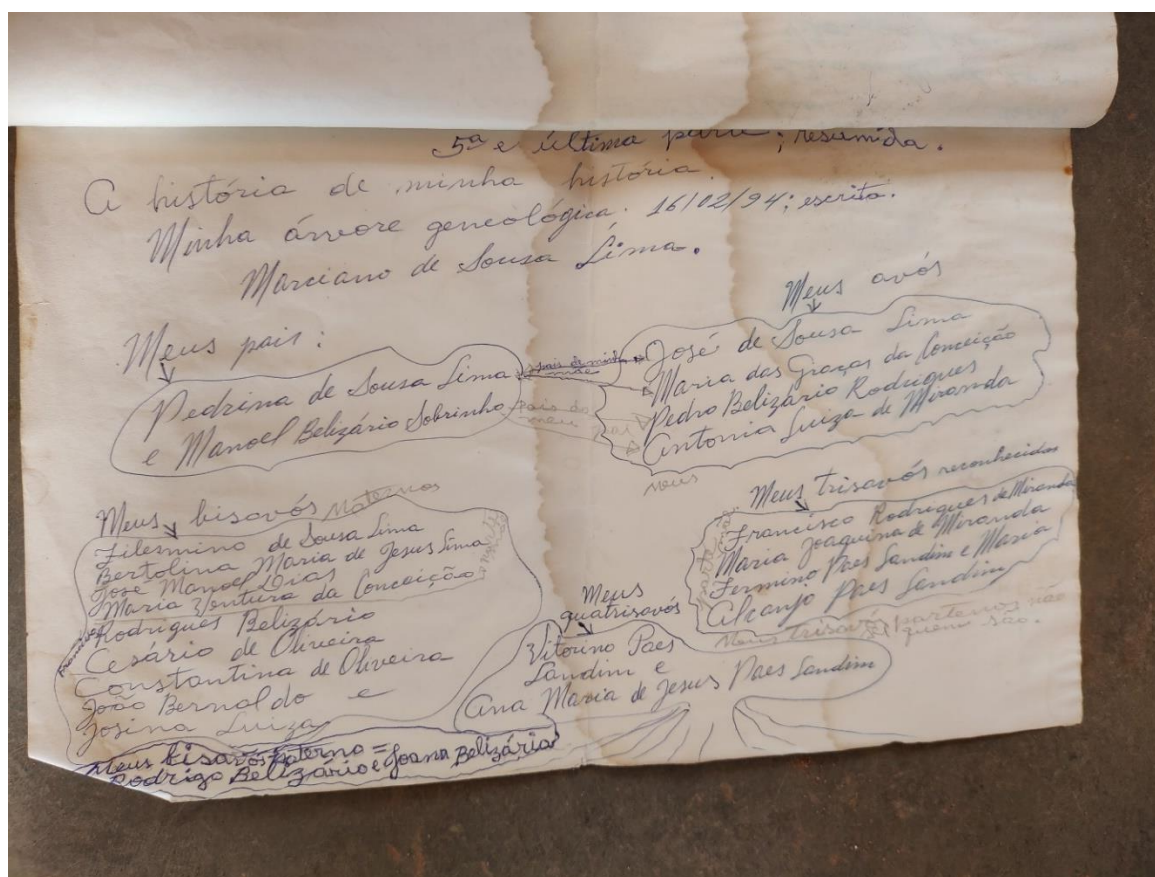 5ª e última parte; resumida.
A história de minha história.
Minha árvore geneológica. 16/02/94; escrito.
Marciano de Sousa Lima.
Meus pais:
Pedrina de Sousa Lima
e Manoel Belizário Sobrinho
pais de minha
mãe
pais do
meu pai
Meus avós
José de Sousa Lima
Maria das Graças da Conceição
Pedro Belizário Rodrigues
Antonia Luiza de Miranda
Meus bisavós Maternos
Filesmino de Sousa Lima
Bertolina Maria de Jesus Lima
José Manoel Dias
Maria Ventura da Conceição
Rodrigues Belizário
Cesário de Oliveira
Constantina de Oliveira
João Bernaldo e
Josina Luiza
Meus bisavós paterno =
Rodrigo Belizário e Joana Belizária
Meus
quatrisavós
Vitorino Paes
Landim e
Ana Maria de Jesus Paes Landim
Meus
Meus trisavós reconhecidos
Francisco Rodrigues de Miranda
Maria Joaquina de Miranda
Fermino Paes Landim e Maria
Alcanja Paes Landim
Meus trisavós parternos não
quem são.